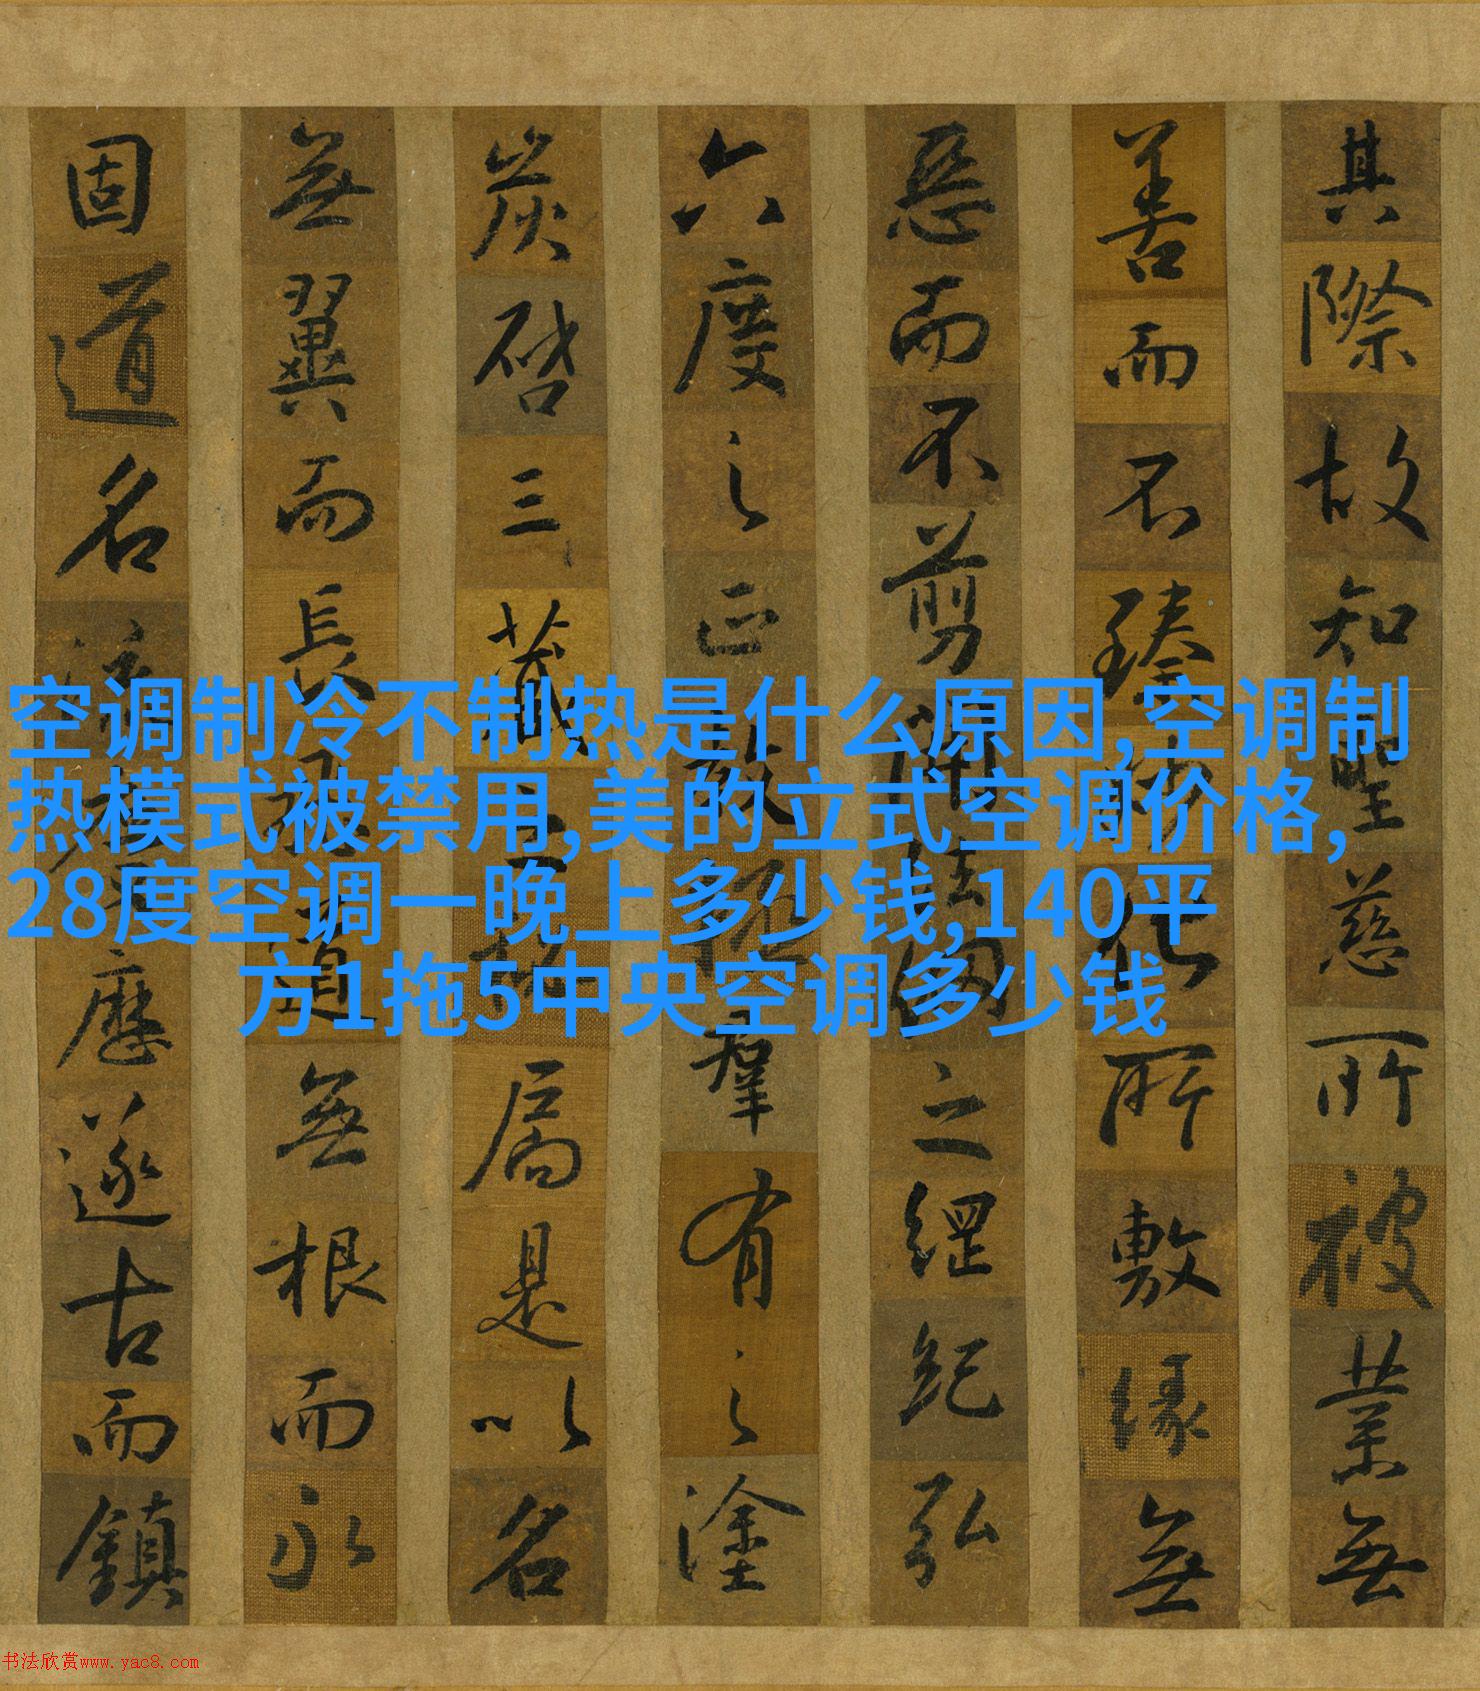 空调制冷不制热是什么原因,空调制
热模式被禁用,美的立式空调价格,
28度空调一晚上多少钱,140平
方1拖5中央空调多少钱
其際故知聖慈所被業無
善而不臻妙化所敷緣無
惡而不剪開法網之綱紀弘
六度之正教拯羣有之塗
炭啓三藏之秘扃是以名
無翼而長飛道無根而永
固道名流慶歷遂古而鎮
书法欣赏www.yac8.com